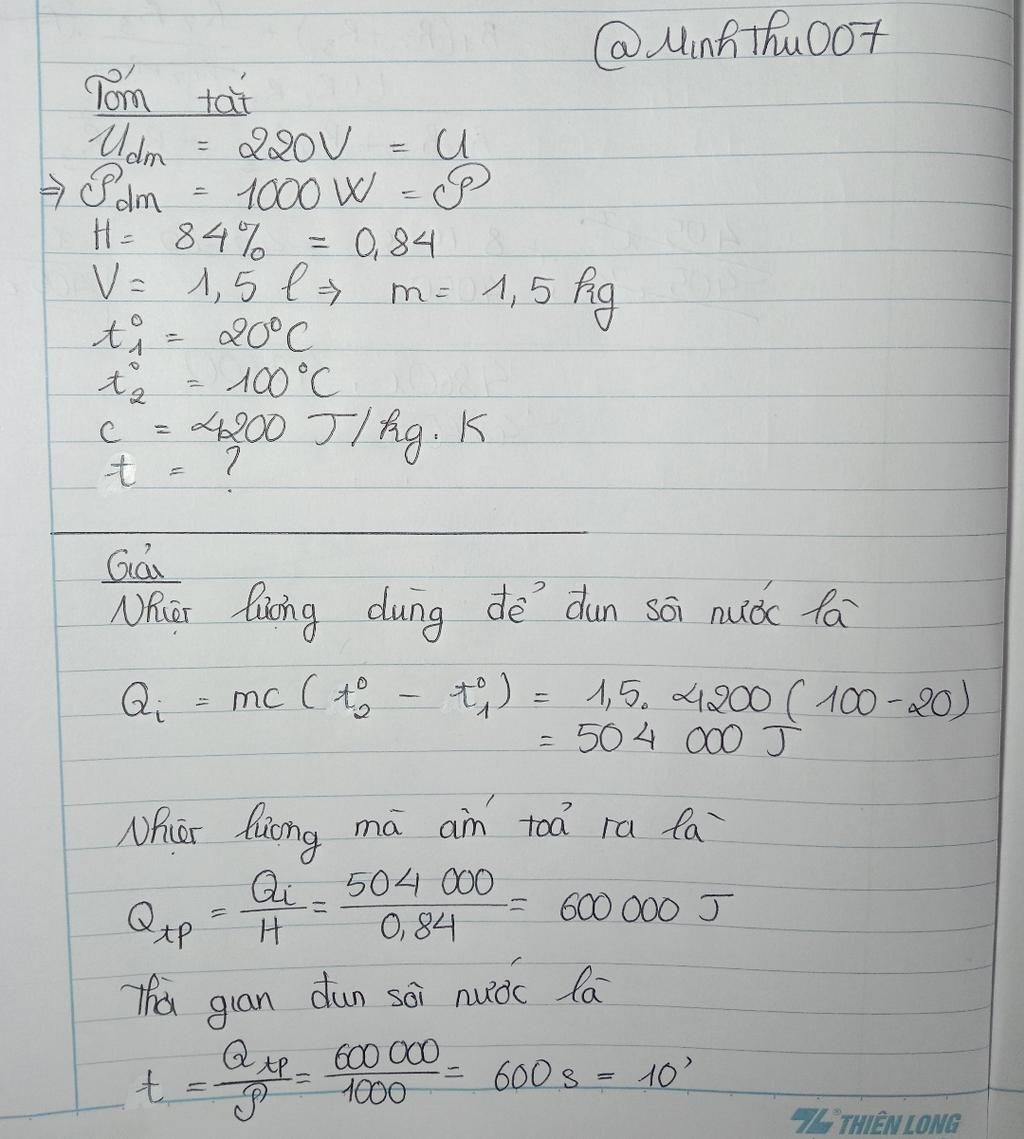 @MinhThu007
Tóm tắt
Uđm = 220V = U
⇒ 𝒫đm = 1000 W = 𝒫
H = 84% = 0,84
V = 1,5 l ⇒ m = 1,5 kg
t°₁ = 20°C
t°₂ = 100°C
c = 4200 J/kg.K
t = ?
Giải
Nhiệt lượng dùng để đun sôi nước là
Qi = mc (t°₂ - t°₁) = 1,5. 4200 (100-20)
= 504 000 J
Nhiệt lượng mà ấm toả ra là
Qtp = Qi/H = 504 000/0,84 = 600 000 J
Thời gian đun sôi nước là
t = Qtp/𝒫 = 600 000/1000 = 600 s = 10'
THIÊN LONG